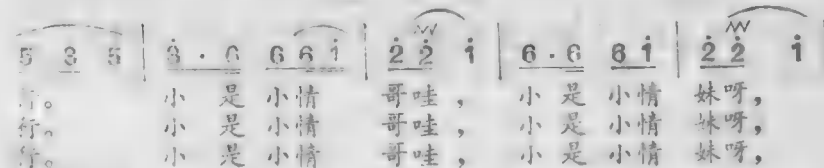 5 3 5 | 3 · 6 6 6 i̇ | 2̇ 2̇ i̇ | 6 · 6 8 i̇ | 2̇ 2̇ i̇
行。 小 是 小情 哥哇， 小 是 小情 妹呀，
行。 小 是 小情 哥哇， 小 是 小情 妹呀，
行。 小 是 小情 哥哇， 小 是 小情 妹呀，